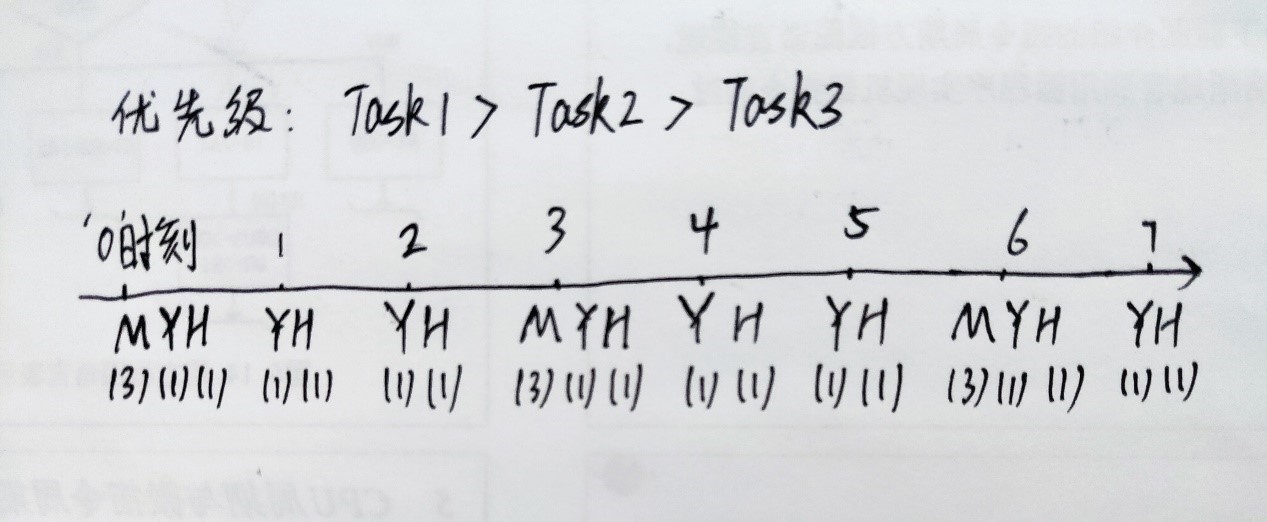 优先级: Task1 > Task2 > Task3
'0时刻 1 2 3 4 5 6 7
M Y H Y H Y H M Y H Y H Y H M Y H Y H
(3) (1) (1) (1) (1) (1) (1) (3) (1) (1) (1) (1) (1) (1) (3) (1) (1) (1) (1)